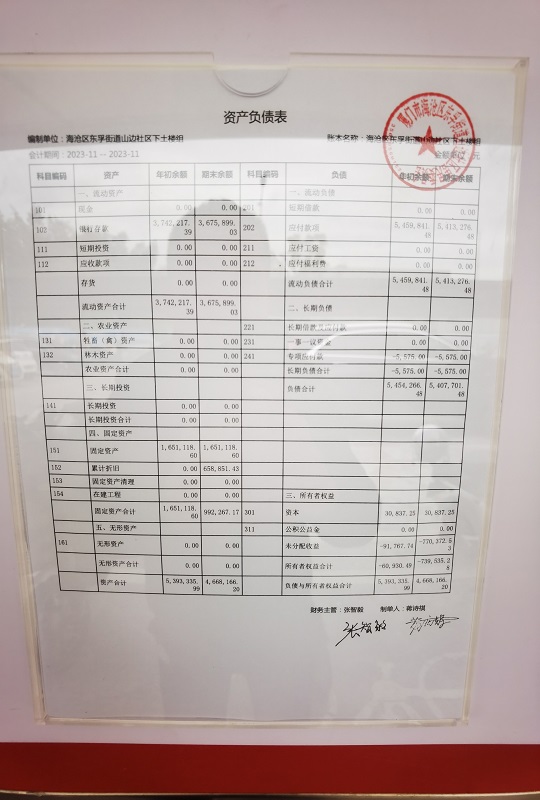 资产负债表
编制单位：海沧区东孚街道山边社区下土楼组 账本名称：海沧区东孚街道山边社区下土楼组
会计期间：2023-11 -- 2023-11 金额单位：元
科目编码 资产 年初余额 期末余额 科目编码 负债 年初余额 期末余额
一、流动资产 一、流动负债
101 现金 0.00 0.00 201 短期借款 0.00 0.00
102 银行存款 3,742,217.39 3,675,899.03 202 应付款项 5,459,841.48 5,413,276.48
111 短期投资 0.00 0.00 211 应付工资 0.00 0.00
112 应收款项 0.00 0.00 212 应付福利费 0.00 0.00
存货 0.00 0.00 流动负债合计 5,459,841.48 5,413,276.48
流动资产合计 3,742,217.39 3,675,899.03 二、长期负债
二、农业资产 221 长期借款及应付款 0.00 0.00
131 牲畜（禽）资产 0.00 0.00 231 一事一议资金 0.00 0.00
132 林木资产 0.00 0.00 241 专项应付款 -5,575.00 -5,575.00
农业资产合计 0.00 0.00 长期负债合计 -5,575.00 -5,575.00
三、长期投资 负债合计 5,454,266.48 5,407,701.48
141 长期投资 0.00 0.00
长期投资合计 0.00 0.00
四、固定资产
151 固定资产 1,651,118.60 1,651,118.60
152 累计折旧 0.00 658,851.43
153 固定资产清理 0.00 0.00
154 在建工程 0.00 0.00 三、所有者权益
固定资产合计 1,651,118.60 992,267.17 301 资本 30,837.25 30,837.25
五、无形资产 311 公积公益金 0.00 0.00
161 无形资产 0.00 0.00 未分配收益 -91,767.74 -770,372.53
无形资产合计 0.00 0.00 所有者权益合计 -60,930.49 -739,535.28
资产合计 5,393,335.99 4,668,166.20 负债与所有者权益合计 5,393,335.99 4,668,166.20
财务主管：张智毅 制单人：蒋诗祺
张智敏